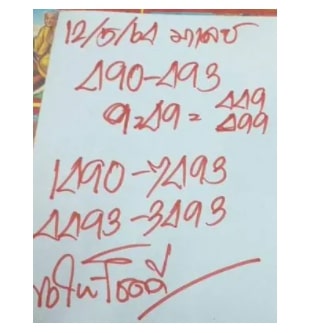 12/5/64 มาเลย์
490-493
9=49= 449
499
1490-7493
4493-3493
ขอให้โชคดี